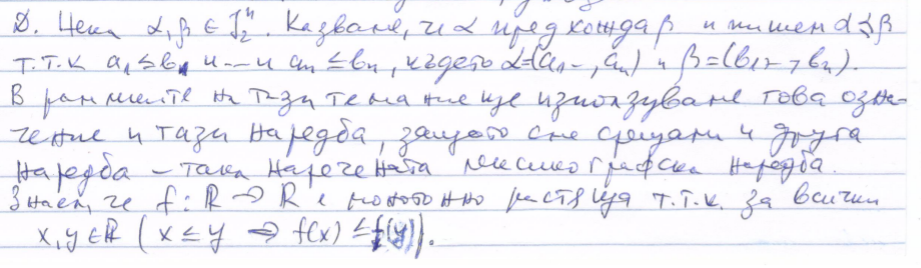 Д. Нека α, β ∈ J₂ⁿ. Казваме, че α предхожда β и пишем α ≼ β
т.т.к a₁ ≤ b₁ и ... и aₙ ≤ bₙ, където α=(a₁..., aₙ) и β=(b₁..., bₙ).
В рамките на тази тема ние ще използуваме това озна-
чение и тази наредба, защото сме срещали и друга
наредба – така наречената лексикографска наредба.
Знаем, че f: ℝ → ℝ е монотонно растяща т.т.к. за всички
x, y ∈ ℝ ( x ≤ y ⇒ f(x) ≤ f(y)).